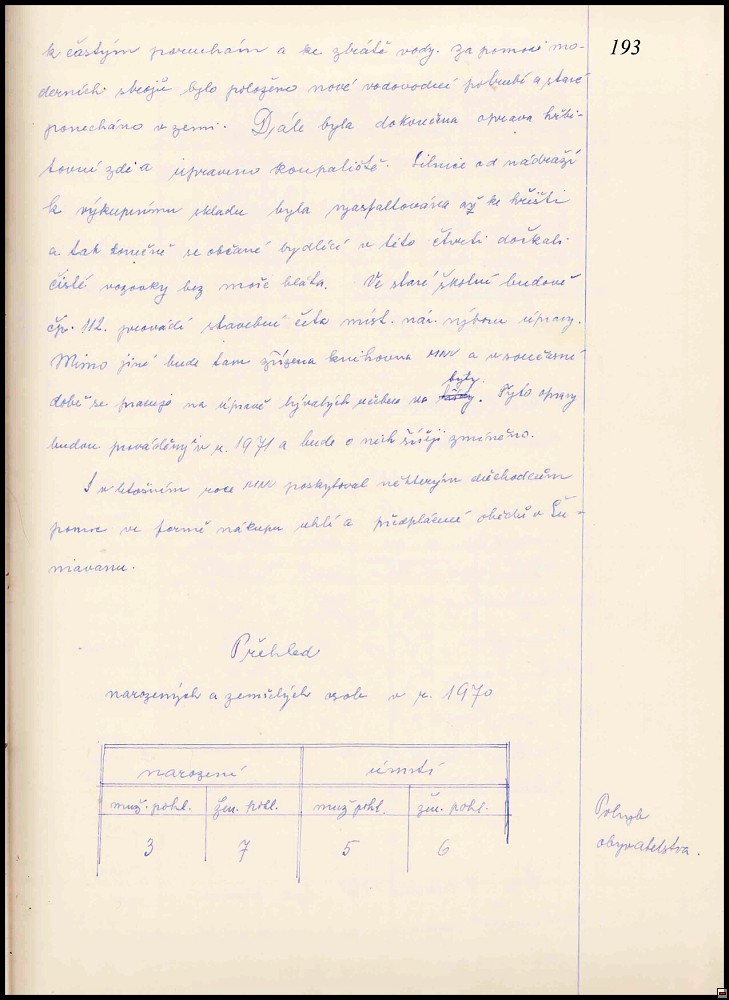 193
k častým poruchám a ke ztrátě vody. Za pomoci mo-
derních strojů bylo položeno nové vodovodní potrubí a staré
ponecháno v zemi. Dále byla dokončena oprava hřbi-
tovní zdi a upraveno koupaliště. Silnice od nádraží
k výkupnímu skladu byla vyasfaltována až ke hřišti
a tak konečně se občané bydlící v této čtvrti dočkali
čisté vozovky bez moře bláta. Ve staré školní budově
čp. 112. provádí stavební četa míst. nár. výboru úpravy.
Mimo jiné bude tam zřízena knihovna MNV a v současné
době se pracuje na úpravě bývalých učeben na byty. Tyto opravy
budou prováděny i v r. 1971 a bude o nich šířeji zmíněno.
I v letošním roce MNV poskytoval některým důchodcům
pomoc ve formě nákupu uhlí a předplácení obědů v Šu-
miavanu.
Přehled
narozených a zemřelých osob v r. 1970
narození úmrtí
muž. pohl. žen. pohl. muž. pohl. žen. pohl.
3 7 5 6
Pohyb
obyvatelstva.